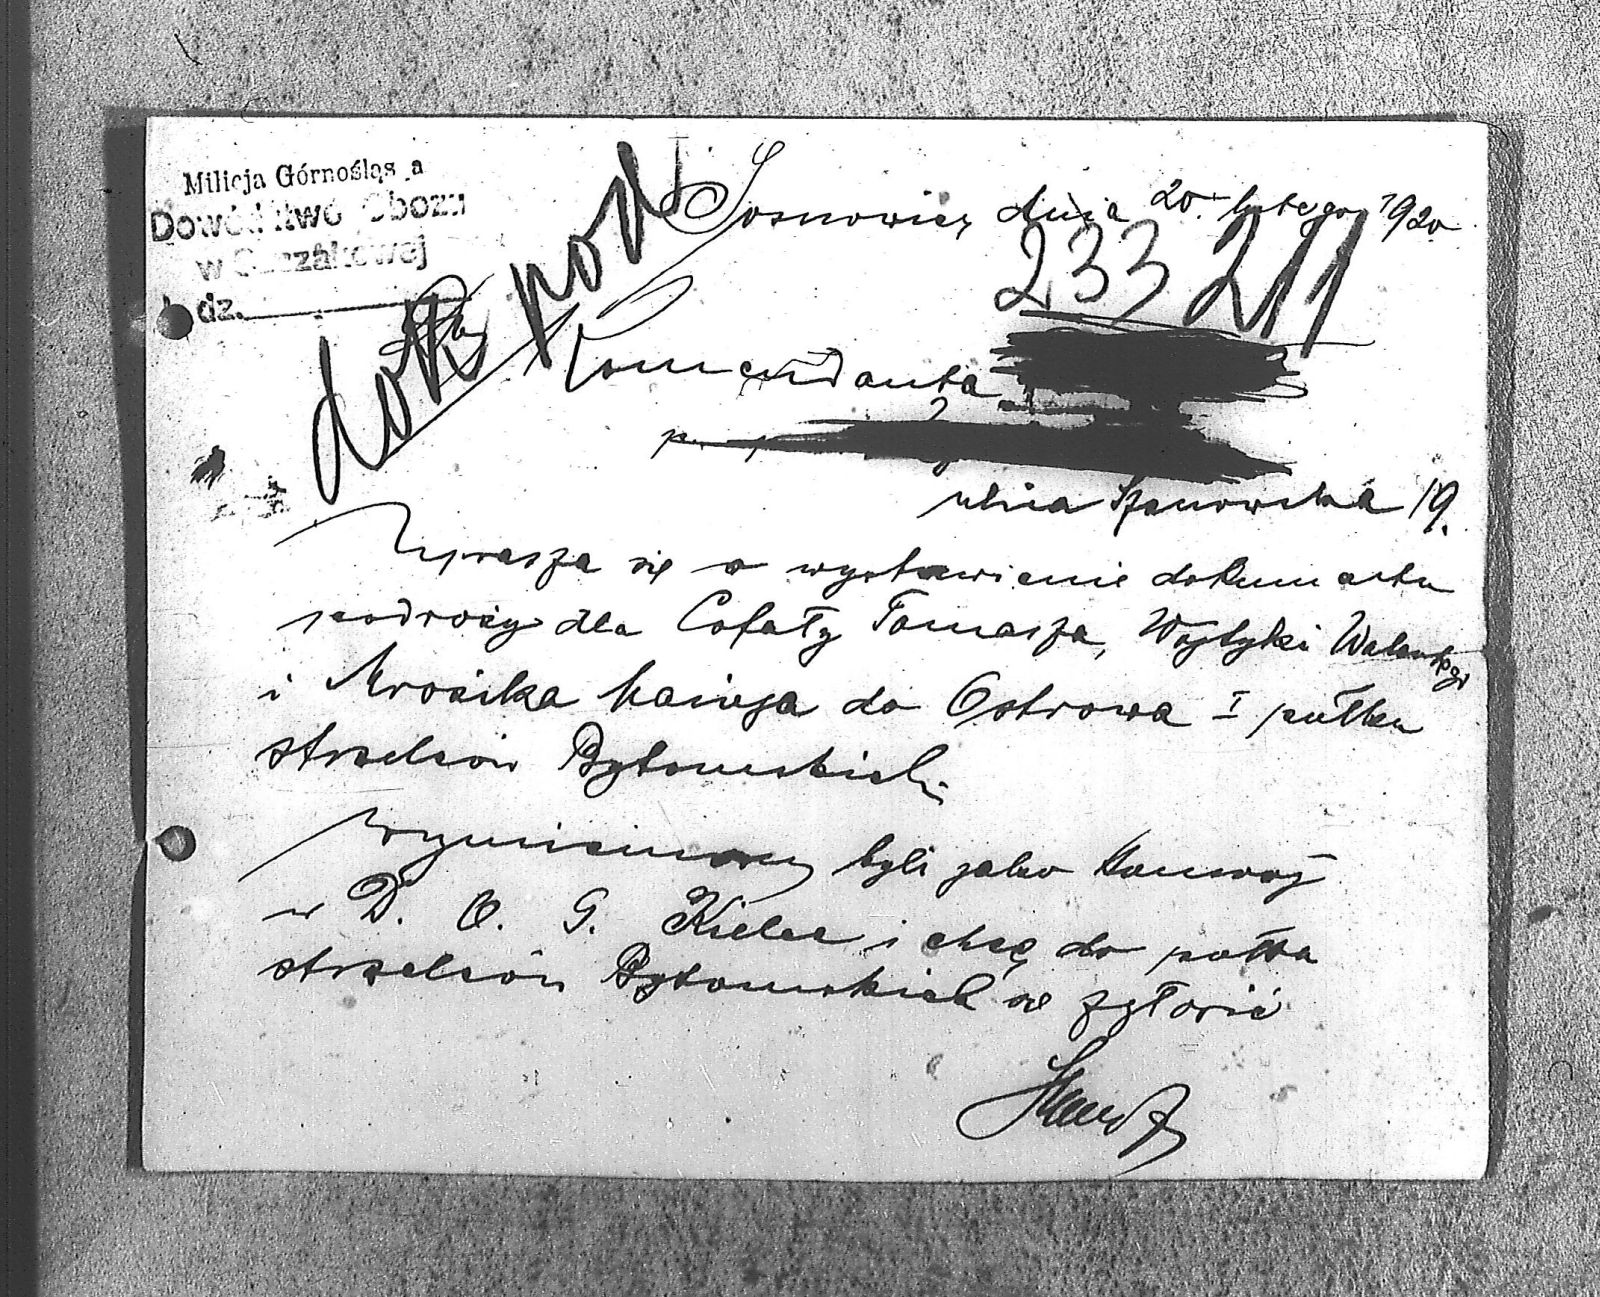 Milicja Górnośląs a
Dowództwo Obozu
w Szczakowej
L dz.
dok pod
Sosnowiec, dnia 20. lutego 1920
233 211
Komendanta
p.
ulica 19.
Uprasza się o wystawienie dokumentu
podroży dla Cofały Tomasza, Wojtyki Walentego
i Mrozika do Ostrowa I pułku
strzelców Bytomskich.
Wymienieni byli jako
w D. O. G. Kielce i chcą do pułku
strzelców Bytomskich se